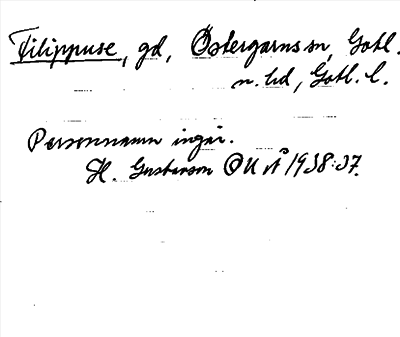 Filippuse, gd, Östergarns sn, Gotl.
n. hd, Gotl. l.
Personnamn ingår.
H. Gustavson OUÅ 1938:37.